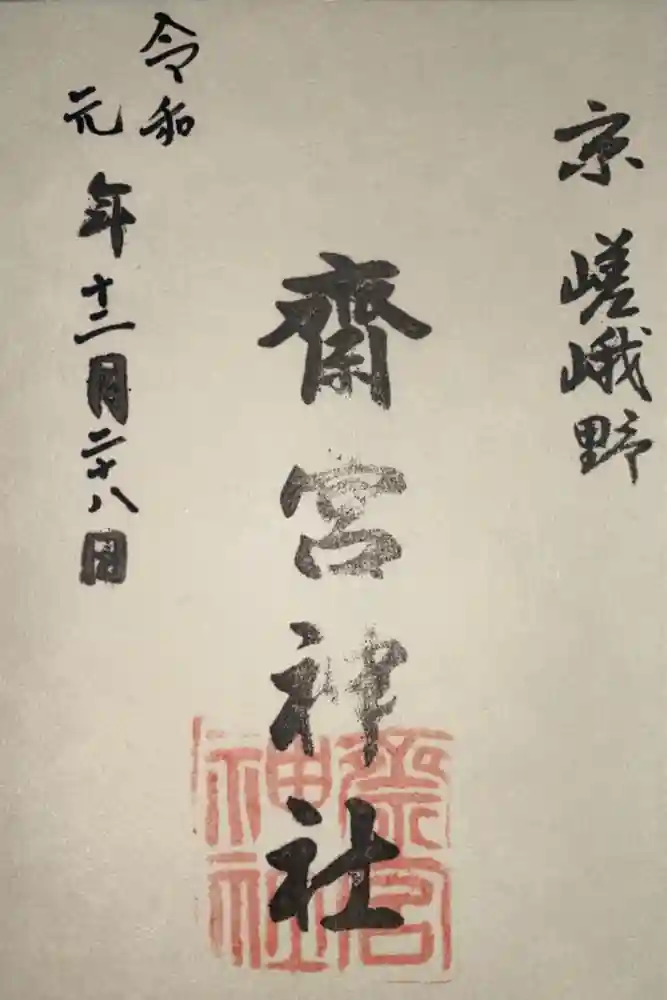 京 嵯峨野
齋宮神社
齋宮
神社
令和
元年十二月二十八日